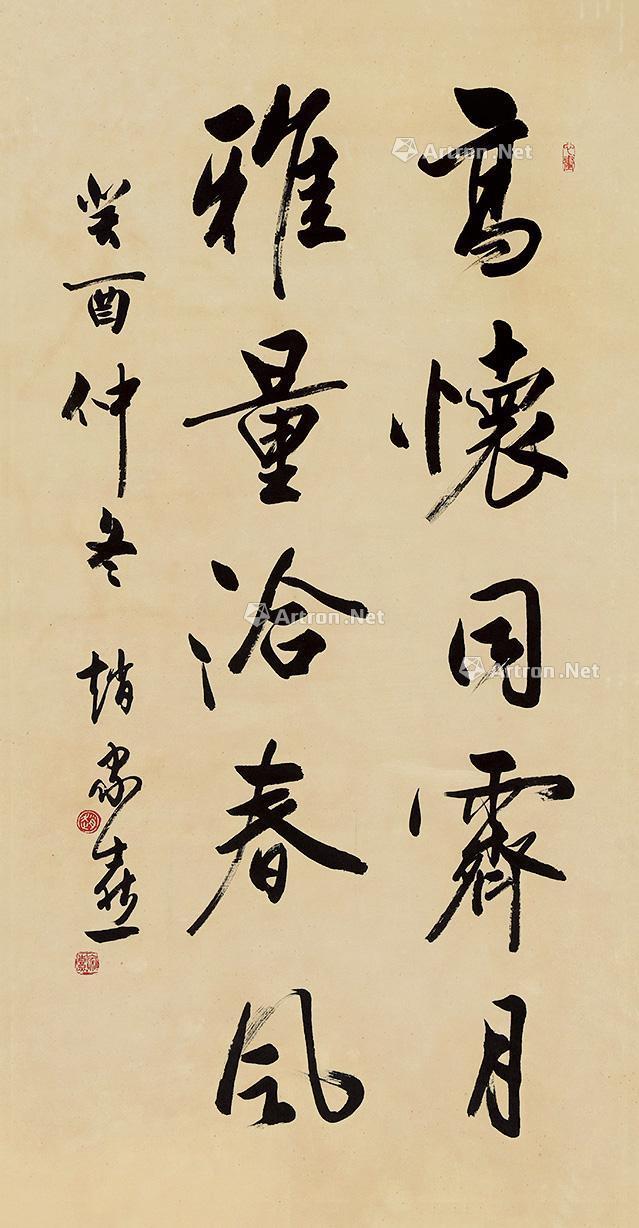 高懷同霽月
雅量洽春風
癸酉仲冬 趙家熹
Artron.Net
Artron.Net
Artron.Net
Artron.Net